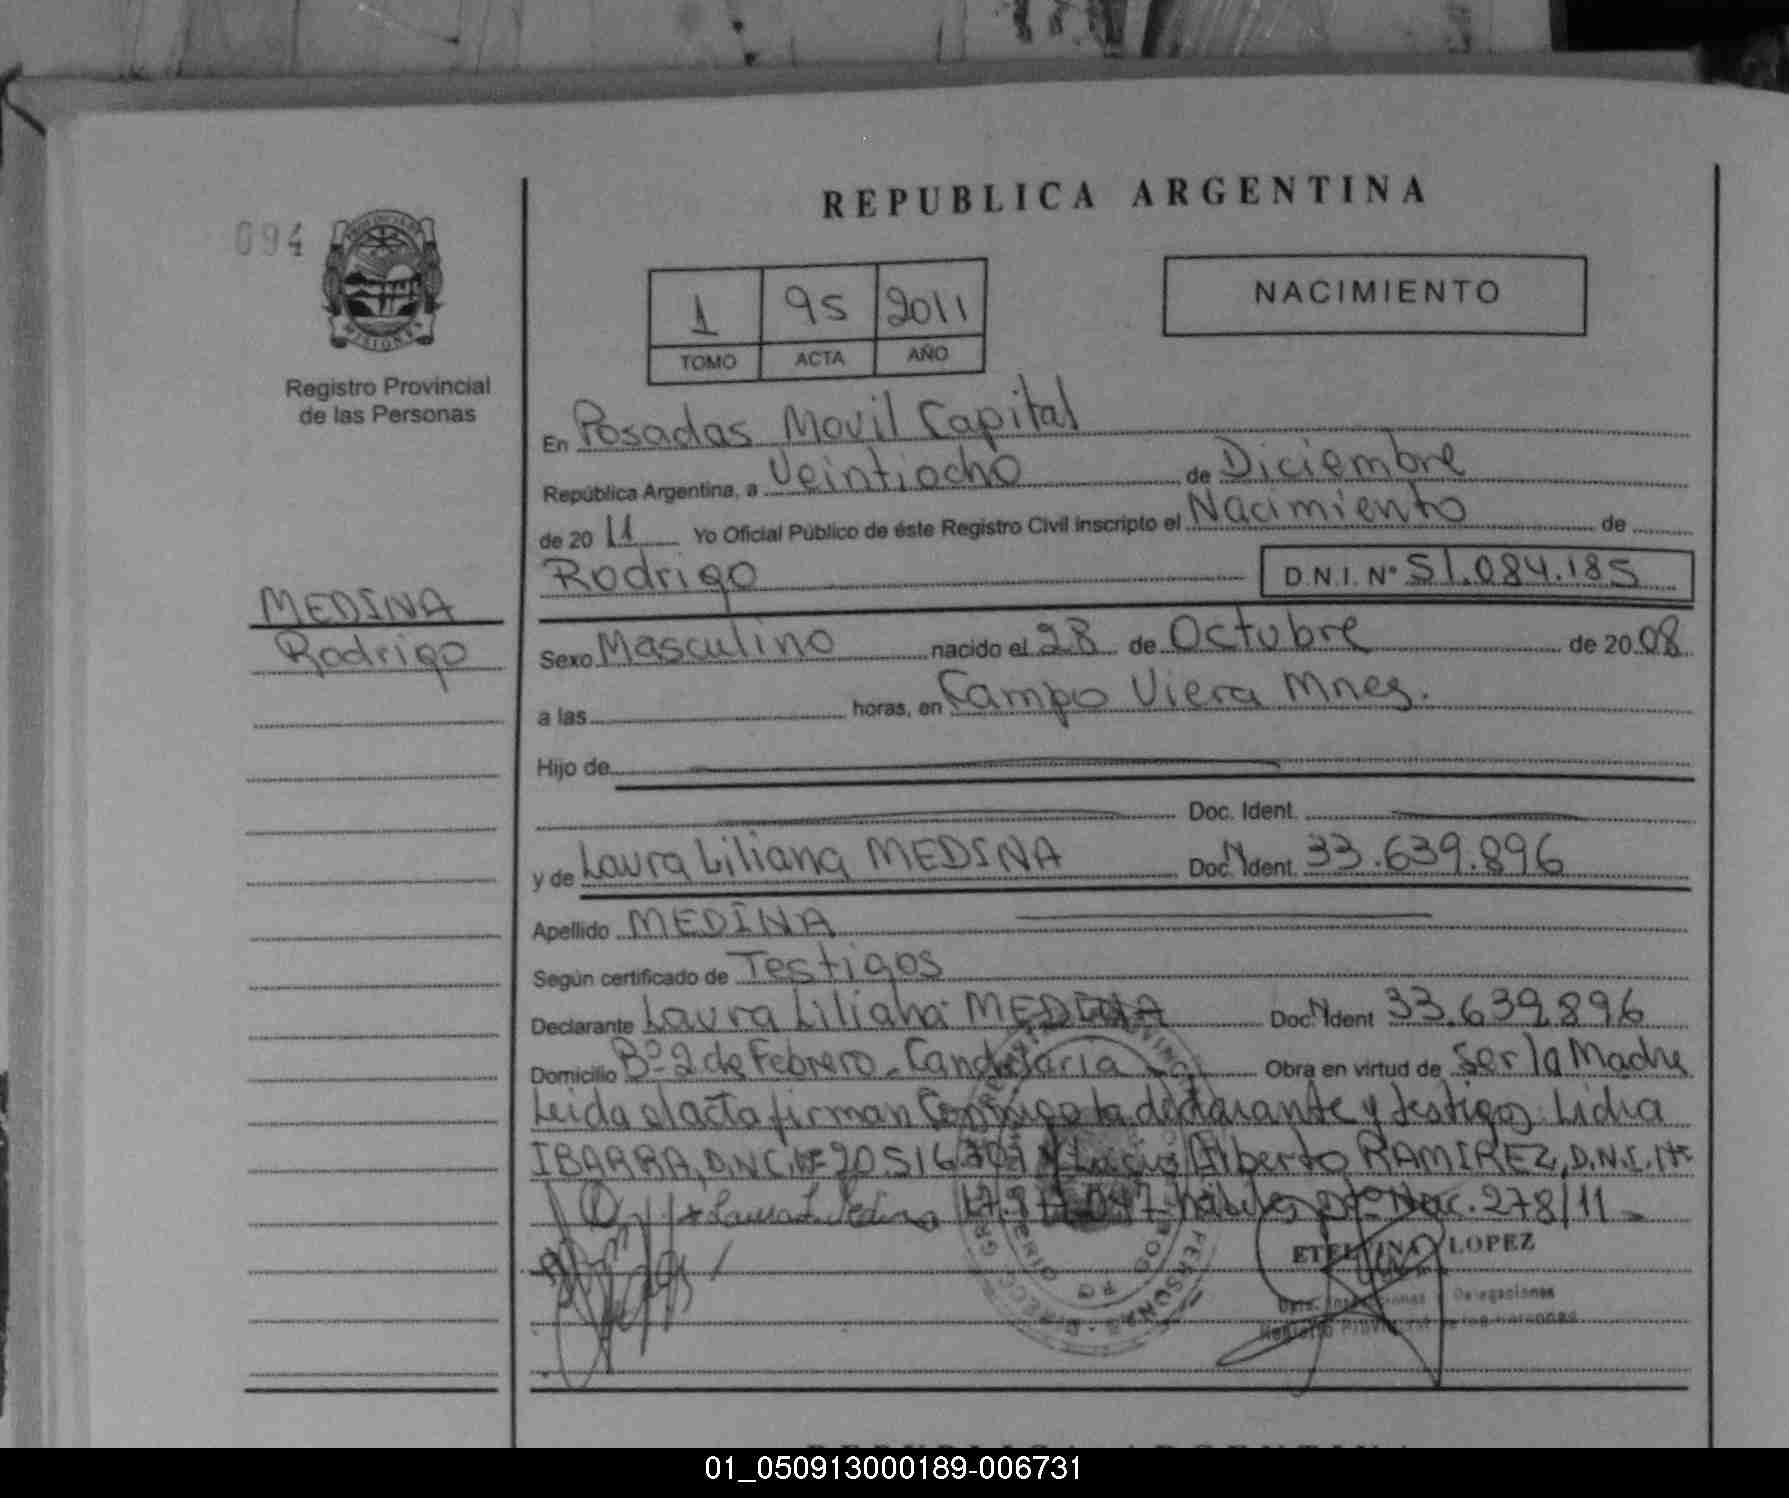 REPUBLICA ARGENTINA
094
NACIMIENTO
1 95 2011
TOMO ACTA AÑO
Registro Provincial
de las Personas
En Posadas Movil Capital
República Argentina, a Veintiocho de Diciembre
de 2011 Yo Oficial Público de éste Registro Civil inscripto el Nacimiento de
Rodrigo D.N.I. Nº 51.084.185
MEDINA
Rodrigo
Sexo Masculino nacido el 28 de Octubre de 2008
a las horas, en Campo Viera Mnes.
Hijo de
Doc. Ident.
y de Laura Liliana MEDINA Doc. Ident. 33.639.896
Apellido MEDINA
Según certificado de Testigos
Declarante Laura Liliana MEDINA Doc. Ident 33.639.896
Domicilio Bº 2 de Febrero - Candelaria Obra en virtud de Ser la Madre
Leida el acta firman Conmigo la declarante y testigos Lidia
IBARRA, D.N.I. Nº Alberto RAMIREZ, D.N.I. Nº
Nac. 278/11
ETELVINA LOPEZ
Delegaciones
Registro Provincial de las Personas
REPUBLICA ARGENTINA
01_050913000189-006731